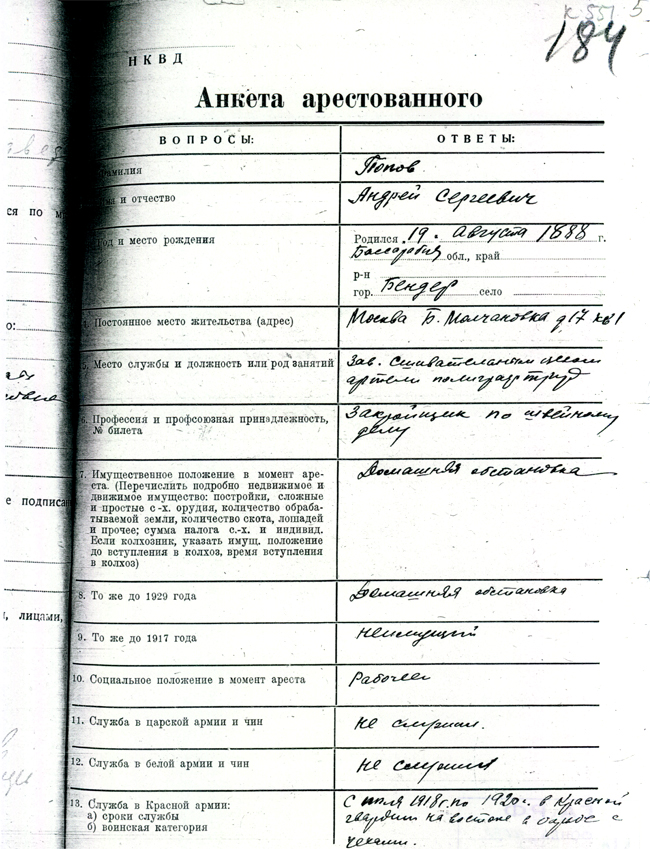 К-551 5
184
НКВД
Анкета арестованного
ВОПРОСЫ:
ОТВЕТЫ:
амилия
Попов
и отчество
Андрей Сергеевич
од и место рождения
Родился 19. Августа 1888 г.
Бессарабия обл., край
р-н
гор. Бендер село
Постоянное место жительства (адрес)
Москва Б. Молчановка д 17 кв 1
5. Место службы и должность или род занятий
Зав. цехом
артели полиграфтруд
6. Профессия и профсоюзная принадлежность,
№ билета
Закройщик по швейному
делу
7. Имущественное положение в момент аре-
ста. (Перечислить подробно недвижимое и
движимое имущество: постройки, сложные
и простые с-х. орудия, количество обраба-
тываемой земли, количество скота, лошадей
и прочее; сумма налога с.-х. и индивид.
Если колхозник, указать имущ. положение
до вступления в колхоз, время вступления
в колхоз)
Домашняя обстановка
8. То же до 1929 года
Домашняя обстановка
9. То же до 1917 года
Неимущий
10. Социальное положение в момент ареста
Рабочее
11. Служба в царской армии и чин
не служил.
12. Служба в белой армии и чин
не служил
13. Служба в Красной армии:
а) сроки службы
б) воинская категория
С 1918 г. по 1920 г. в Красной
гвардии на востоке в с
чехами.
ся по м
о:
е подписан
, лицами,